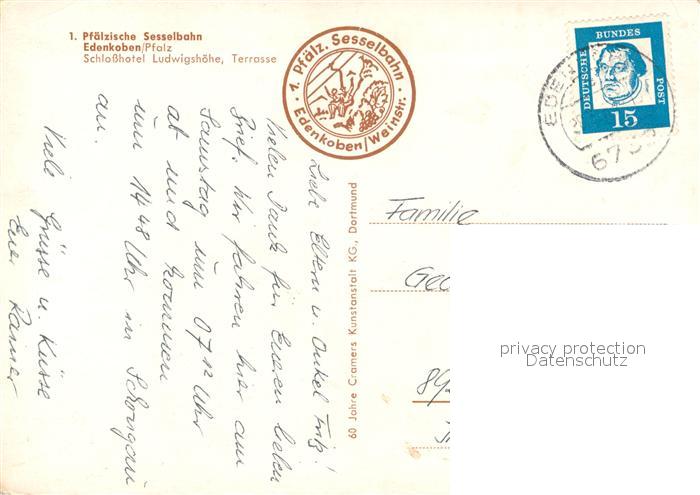 1. Pfälzische Sesselbahn
Edenkoben/Pfalz
Schloßhotel Ludwigshöhe, Terrasse
· 1. Pfälz. Sesselbahn ·
Edenkoben/Weinstr.
DEUTSCHE BUNDES POST
15
673
60 Jahre Cramers Kunstanstalt KG., Dortmund
Liebe Eltern u. Onkel Fritz!
Vielen Dank für Euren lieben
Brief. Wir fahren hier am
Samstag um 07 12 Uhr
ab und kommen
um 14 48 Uhr in Schongau
an.
Viele Grüsse u. Küsse
Euer Rainer
Familie
privacy protection
Datenschutz